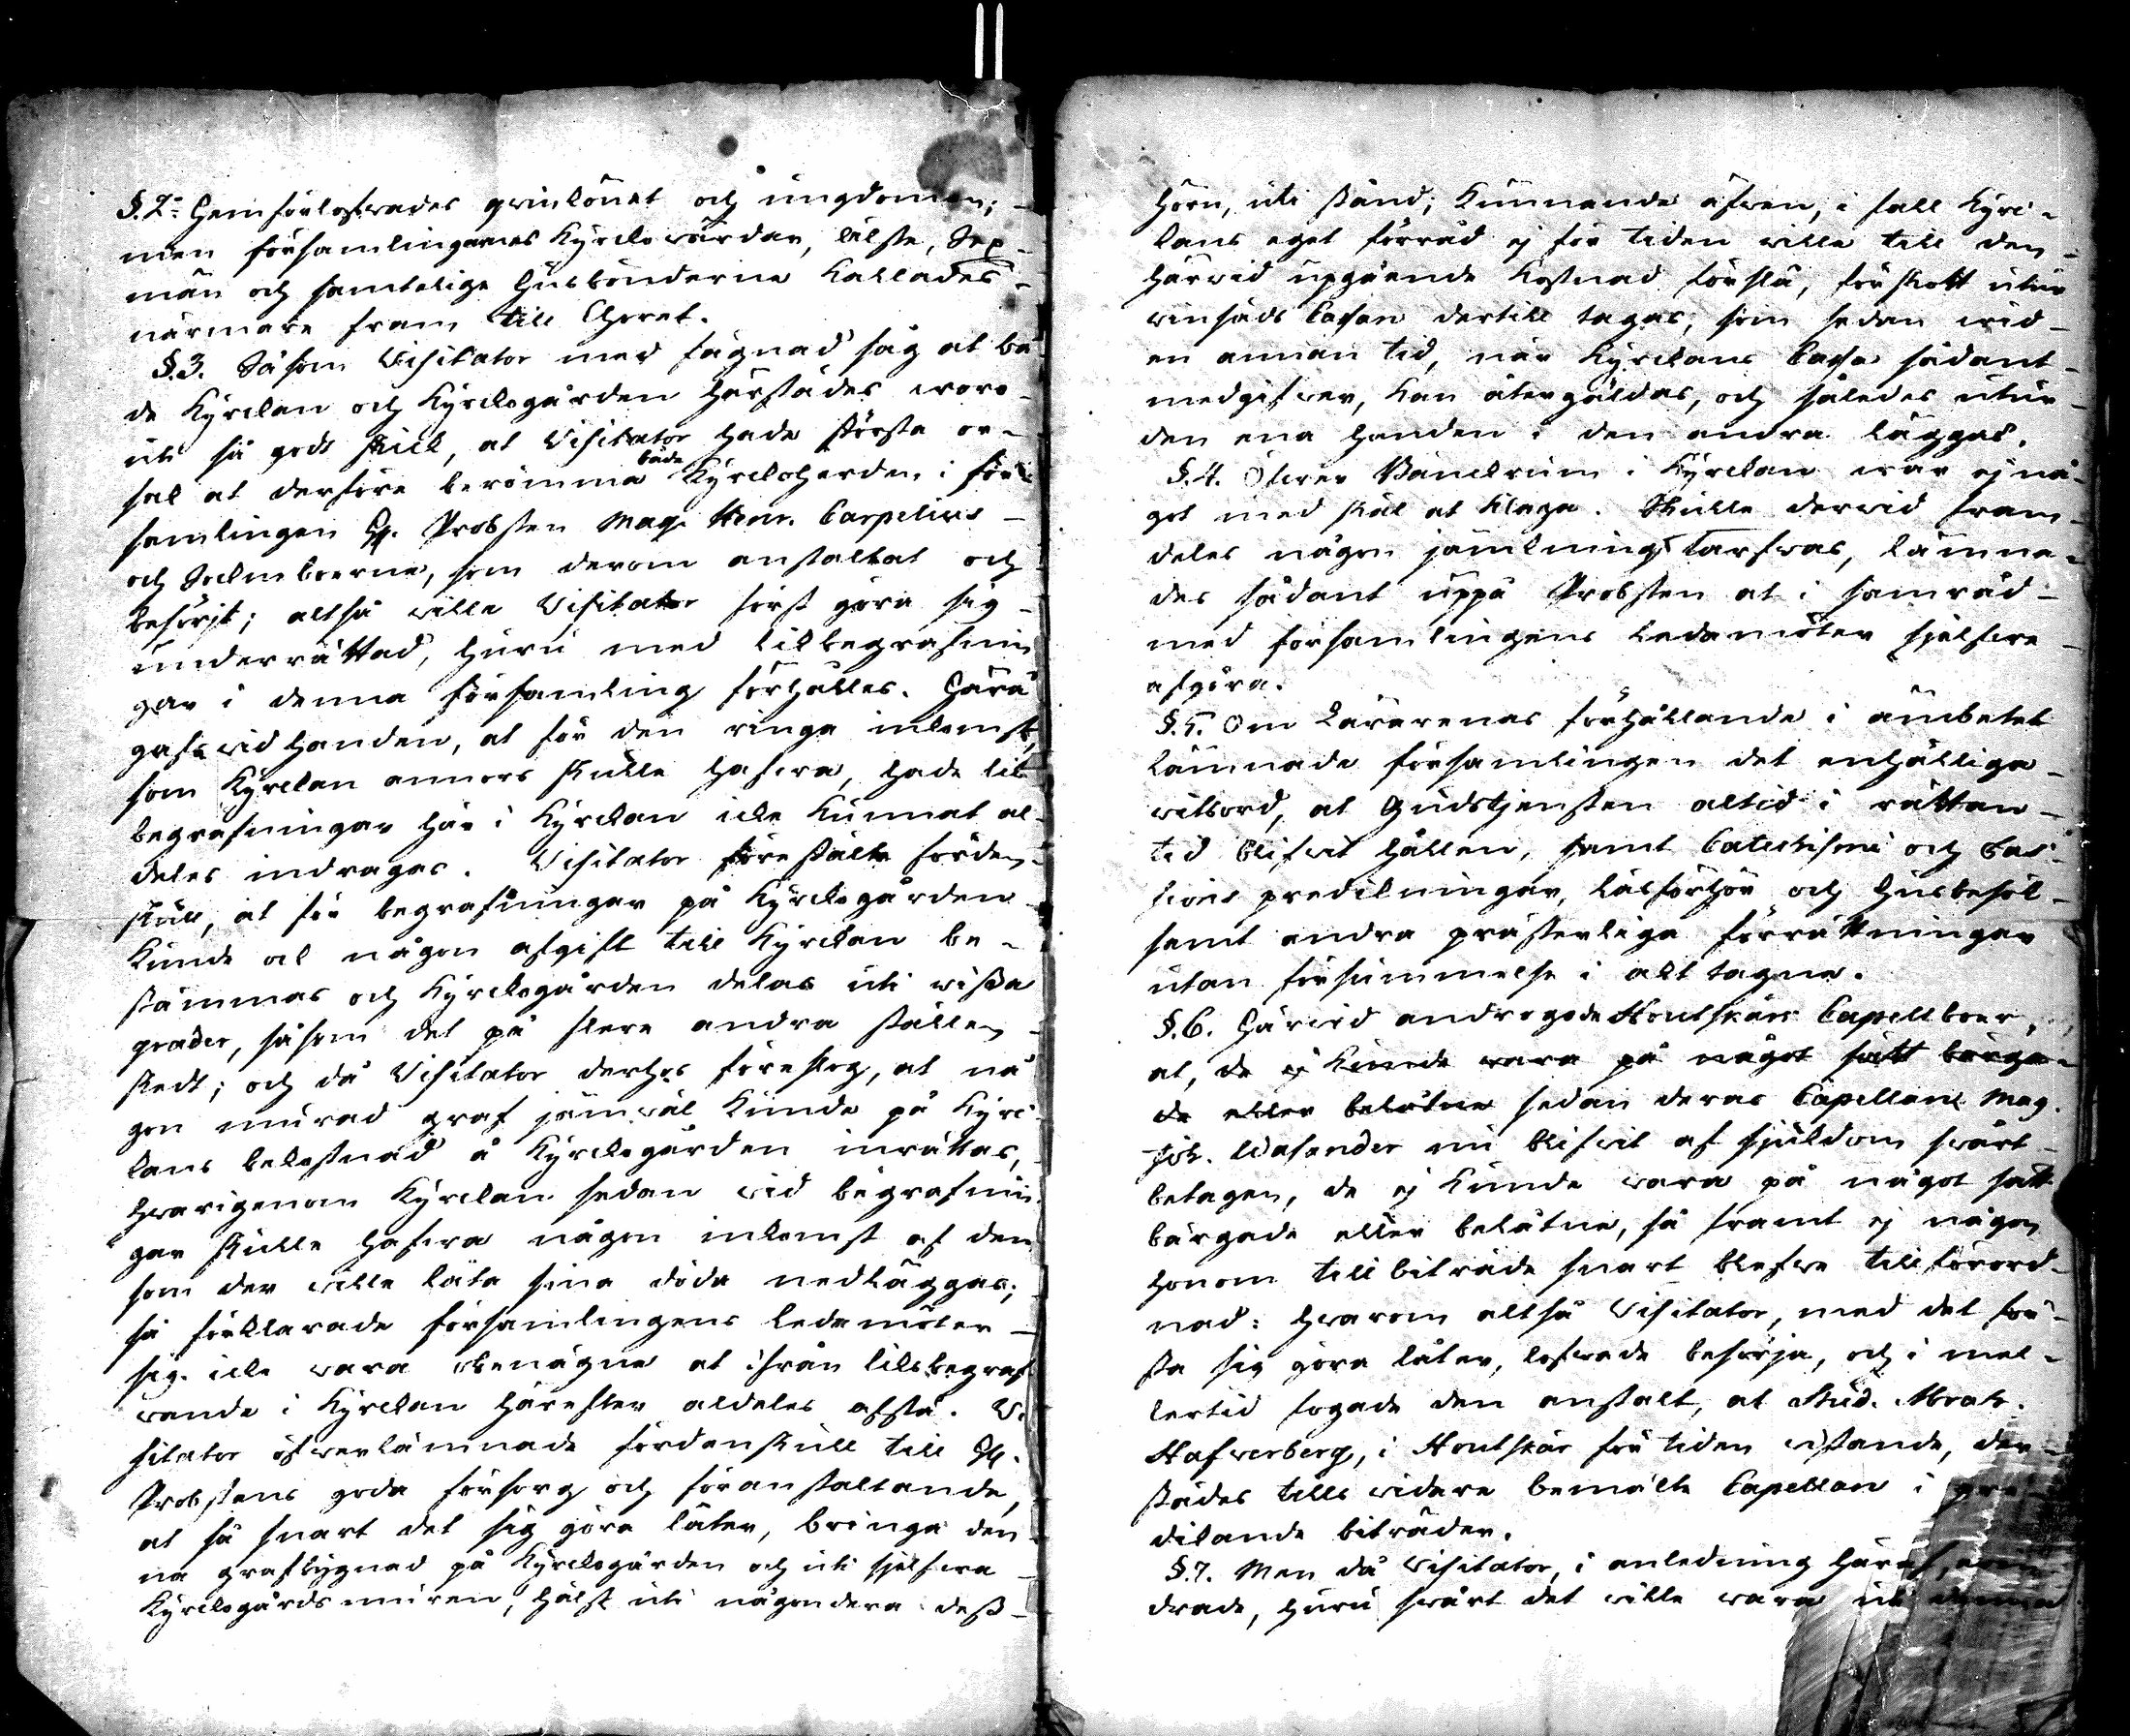 §. 2. Hemförlofwades qwinkönet och ungdomen;
men församlingarnes Kyrckowärdar, älste, Sex-
män och samtelige Husbönderne kallades
närmare fram till Choret.
§. 3. Såsom Visitator med fägnad såg at bå
de Kyrckan och Kyrckogården härstädes woro
uti så godt skick, at Visitator hade största or-
sak at derföre berömma både Kyrckoherden i för-
samlingen H. Probsten Mag. Henr. Carpelius
och Socknboerne, som derom anstaltat och
besörjt; altså wille Visitator först göra sig
underrättad, huru med likbegrafnin
gar i denna församling förhålles. Härå
gafs wid handen, at för den ringa inkomst,
som Kyrckan annors skulle hafwa, hade lik
begrafningar här i Kyrckan icke kunnat al-
deles indragas. Visitator förestälte förden-
skull, at för begrafningar på Kyrckogården
kunde ock någon afgift till Kyrckan be-
stämmas och Kyrckogården delas uti wissa
grader, såsom det på flere andra ställen
skedt; och då Visitator derhos föreslog, at nå
gon murad graf jämwäl kunde på Kyrc-
kans bekostnad å Kyrckogården inrättas,
hwarigenom Kyrckan sedan wid begrafnin
gar skulle hafwa någon inkomst af dem
som der wille låta sina döda nedläggas;
så förklarade församlingens ledamöter
sig icke wara obenägne at ifrån likbegraf
wande i Kyrckan härefter aldeles afstå. Vi
sitator öfwerlämnade fördenskull till H.
Probstens goda försorg och föranstaltande,
at så snart det sig göra låter, bringa den
na grafbygnad på Kyrckogården och uti sjelfwa
Kyrckogårds muren, hälst uti någondera dess
hörn, uti stånd; kunnande äfwen, i fall Kyrc-
kans eget förråd ej för tiden wille till den
härwid upgående kostnad förslå, förskott utur
winsäds Cassan dertill tagas, som sedan wid
en annan tid, när Kyrckans Cassa sådant
medgifwer, kan återgäldas, och således utur
den ena handen i den andra läggas.
§. 4. Öfwer Bänckrum i Kyrckan war ej nå-
got med skäl at klaga. Skulle derwid fram-
deles någon jämkning tarfwas, lämna-
des sådant uppå Probsten at i samråd
med församlingens ledamöter sjelfwe
afgöra.
§. 5. Om Lärarenas förhållande i ämbetet
lämnade församlingen det enhälliga
witsord, at Gudstjensten altid i rättan
tid blifwit hållen, samt Catechismi och Pas-
sions predikningar, läsförhör och husbesök
samt andra prästerliga förrättningar
utan försummelse i akt tagne.
§. 6. Härwid androgo de Houtskärs Capellboer,
at, de ej kunde wara på något sätt bärga-
de eller belåtne sedan deras Capellan Mag.
Joh. Wasander nu blifwit af sjukdom swårt
betagen, de ej kunde wara på något sätt
bärgade eller belåtne, så framt ej någon
honom till biträde snart blefwe till förord-
nad: hwarom altså Visitator, med det för-
sta sig göra låter, lofwade besörja, och i mel-
lertid fogade den anstalt, at Stud. Abrah.
Hafwerberg, i Houtskär för tiden wistande, der-
städes tills widare bemälte Capellan i pre-
dikande biträder.
§. 7. Men då Visitator, i anledning häraf,
drade, huru swårt det wille wara uti denna